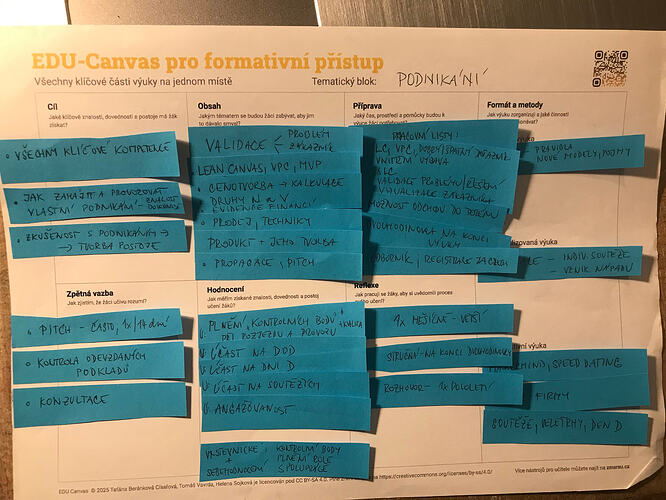 EDU-Canvas pro formativní přístup
Všechny klíčové části výuky na jednom místě
Tematický blok: PODNIKÁNÍ
Cíl
Jaké klíčové znalosti, dovednosti a postoje má žák
získat?
• VŠECHNY KLÍČOVÉ KOMPETENCE
• JAK ZAHÁJIT A PROVOZOVAT
VLASTNÍ PODNIKÁNÍ - ZNALOST
• ZKUŠENOST S PODNIKÁNÍM →
→ TVORBA POSTOJE
Obsah
Jakým tématem se budou žáci zabývat, aby jim
to dávalo smysl?
VALIDACE PROBLÉM
ZÁKAZNÍK
LEAN CANVAS, VPC, MVP
• CENOTVORBA → KALKULACE
DRUHY N A V
EVIDENCE FINANCÍ
• PRODEJ, TECHNIKY
PRODUKT + JEHO TVORBA
• PROPAGACE, PITCH
Příprava
Jaký čas, prostředí a pomůcky budou k
PRACOVNÍ LISTY:
LC, VPC, DOBRÝ/ŠPATNÝ
VNITŘNÍ VÝBAVA
VALIDACE PROBLÉMU/ŘEŠENÍ
VIZUALIZACE ZÁKAZNÍKA
MOŽNOST ODCHODU DO TERÉNU
DVOUHODINOVKA NA KONCI
VÝUKY
ODBORNÍK, REGISTRACE
Formát a metody
Jak výuku zorganizuji a jaké činnosti
- PRAVIDLA
NOVÉ MODELY, POJMY
výuka
- INDIV. SOUTĚŽE
- VZNIK NÁPADU
výuka
SPEED DATING
FIRMY
SOUTĚŽE, VELETRHY, DEN D
Zpětná vazba
Jak zjistím, že žáci učivu rozumí?
• PITCH - ČASTO, 1x/14 dní
• KONTROLA ODEVZDANÝCH
PODKLADŮ
• KONZULTACE
Hodnocení
Jak měřím získané znalosti, dovednosti a postoj
učení žáků?
PLNĚNÍ KONTROLNÍCH BODŮ + KVALITA
PŘI ROZJEZDU A PROVOZU
ÚČAST NA DOD
ÚČAST NA DNI D
ÚČAST NA SOUTĚŽÍCH
ANGAŽOVANOST
VRSTEVNICKÉ
+
SEBEHODNOCENÍ
KONTROLNÍ BODY
PLNĚNÍ ROLE
SPOLUPRÁCE
Reflexe
Jak pracuji se žáky, aby si uvědomili proces
učení?
1x MĚSÍČNĚ - VĚTŠÍ
STRUČNÁ - NA KONCI DVOUHODINOVKY
ROZHOVOR - 1x POLOLETÍ
EDU Canvas © 2025 by Taťána Beránková Císařová, Tomáš Vavrda, Helena Sojková je licencován pod CC BY-SA 4.0.
https://creativecommons.org/licenses/by-sa/4.0/
Více nástrojů pro učitele můžete najít na